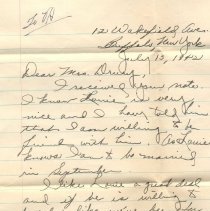 12 Wakefield Ave.
Buffalo, New York
July 13, 1942
Dear Mrs. Drury,
I received your note.
I know Louie is very
nice and I have told him
that I am willing to be
friend with him. As Louie
knows I am to be married
in September.
I like Louie a great deal
and if he is willing to